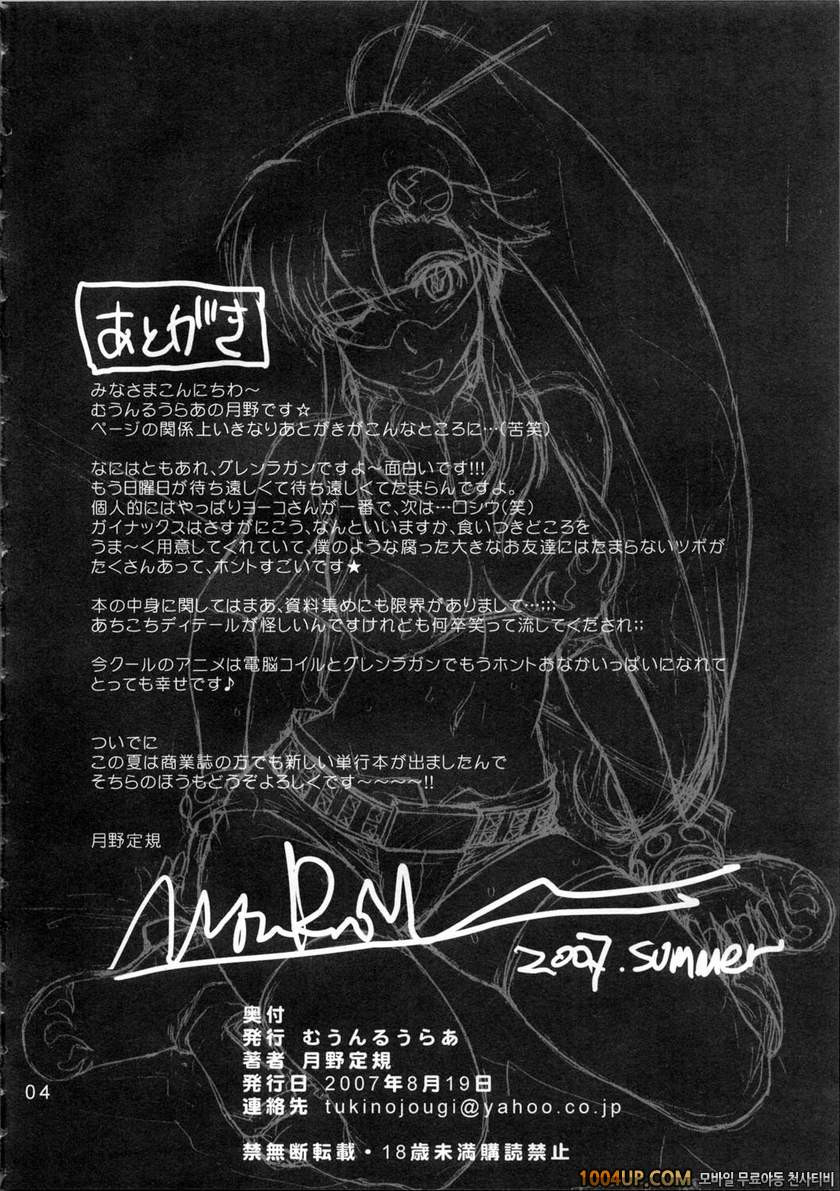 あとがき
みなさまこんにちわ～
むうんるうらあの月野です☆
ページの関係上いきなりあとがきがこんなところに…（苦笑）
なにはともあれ、グレンラガンですよ～面白いです!!!
もう日曜日が待ち遠しくて待ち遠しくてたまらんですよ。
個人的にはやっぱりヨーコさんが一番で、次は…ロシウ（笑）
ガイナックスはさすがにこう、なんといいますか、食いつきどころを
うま～く用意してくれていて、僕のような腐った大きなお友達にはたまらないツボが
たくさんあって、ホントすごいです★
本の中身に関してはまあ、資料集めにも限界がありまして…;;;
あちこちディテールが怪しいんですけれども何卒笑って流してくだされ;;
今クールのアニメは電脳コイルとグレンラガンでもうホントおなかいっぱいになれて
とっても幸せです♪
ついでに
この夏は商業誌の方でも新しい単行本が出ましたんで
そちらのほうもどうぞよろしくです～～～～!!
月野定規
2007.summer
奥付
発行 むうんるうらあ
著者 月野定規
発行日 2007年8月19日
連絡先 tukinojougi@yahoo.co.jp
04
禁無断転載・18歳未満購読禁止
1004UP.COM 모바일 무료야동 천사티비